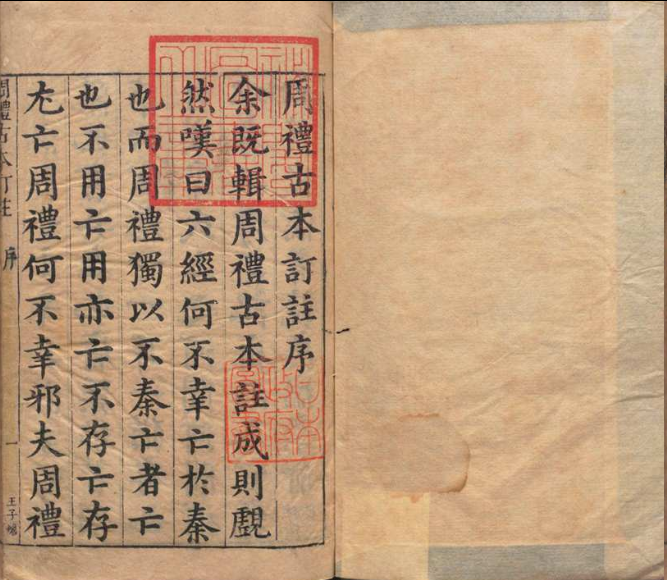 周禮古本訂註序
余既輯周禮古本註成則
然嘆曰六經何不幸亡於秦
也而周禮獨以不秦亡者亡
也不用亡用亦亡不存亡存
尤亡周禮何不幸邪夫周禮
周禮古本訂註 序 一 王子